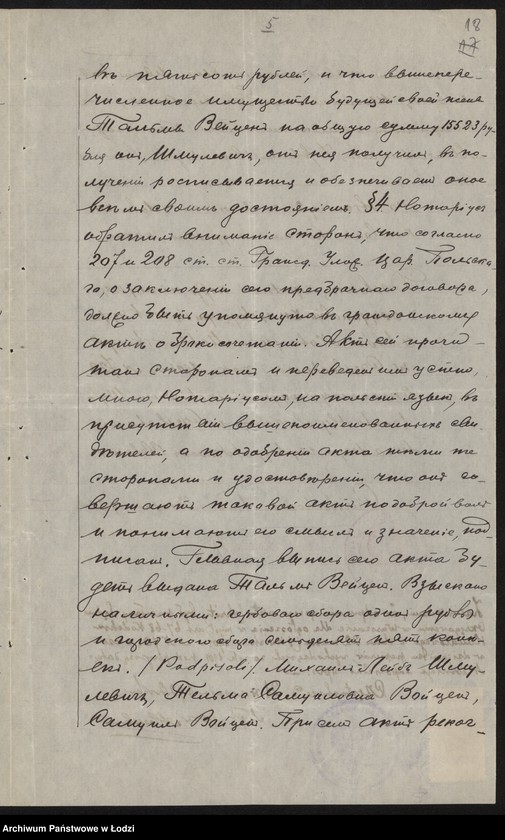 5
18
17
въ пятьсотъ рублей, и что вышепере-
численное имущество будущей своей жены
Тэльмы Войцехъ на общую сумму 15523 ру-
бля онъ, Шмулевичъ, отъ нея получилъ, въ по-
лученіи росписывается и обезпечиваетъ оное
всѣмъ своимъ достояніемъ. §4. Нотаріусъ
обратилъ вниманіе сторонъ, что согласно
207 и 208 ст. ст. Гражд. Улож. Цар. Польска-
го, о заключеніи сего предбрачнаго договора,
должно быть упомянуто въ гражданскомъ
актѣ о бракосочетаніи. Актъ сей прочи-
танъ сторонамъ и переведенъ имъ устно,
мною, Нотаріусомъ, на польскій языкъ, въ
присутствіи вышепоименованныхъ сви-
дѣтелей, а по одобреніи акта тѣми же
сторонами и удостовѣреніи, что онѣ со-
вершаютъ таковой актъ по доброй волѣ
и понимаютъ его смыслъ и значеніе, под-
писанъ. Главная выпись сего акта бу-
детъ выдана Тэльмѣ Войцехъ. Взыскано
наличными: гербоваго сбора одинъ рубль
и городского сбора семьдесятъ пять копѣ-
екъ. /Podpisali/. Михаилъ Лейба Шму-
левичъ, Тельма Самуиловна Войцехъ,
Самуилъ Войцехъ. При семъ актѣ
Archiwum Państwowe w Łodzi